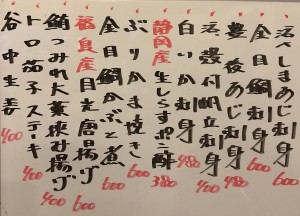 活〆しまあじ刺身 600
金目鯛刺身 600
豊後あじ刺身 480
活殻付帆立刺身 400
白いか刺身 480
静岡産生しらすポン酢 380
ぶりかま焼き 600
金目鯛かぶと煮 600
福島産目光唐揚げ 600
鮪つみれ大葉挟み揚げ 400
トロ茄子ステーキ 400
谷中生姜 400